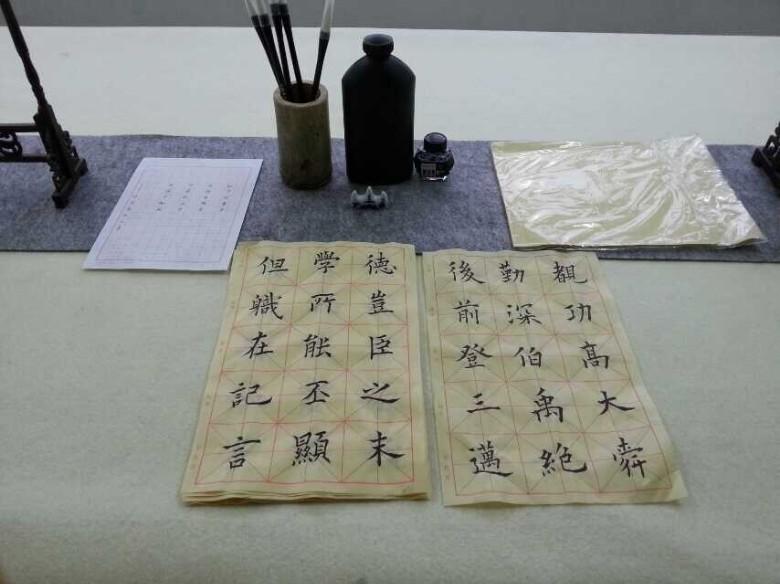 覩功高大舜
勤深伯禹絶
後前登三邁
德豈臣之末
學所能丕顯
但職在記言